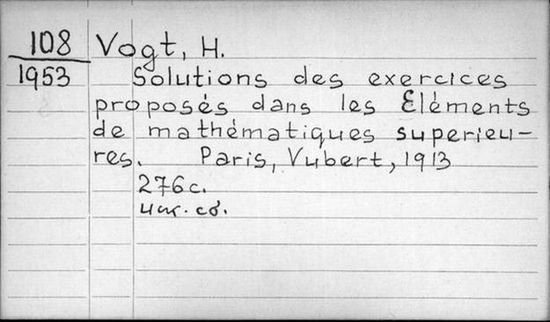 108 Vogt, H.
1953 Solutions des exercices
proposés dans les Éléments
de mathématiques superieu-
res. Paris, Vubert, 1913
276c.